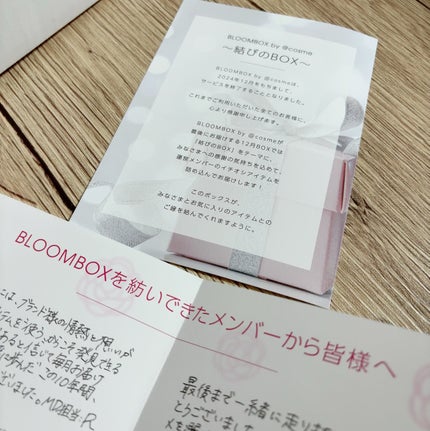 BLOOMBOX by @cosme
～結びのBOX～
BLOOMBOX by @cosmeは、
2024年12月をもちまして、
サービスを終了することとなりました。
これまでご利用いただいた全てのお客様に、
心より感謝申し上げます。
BLOOMBOX by @cosmeが
最後にお届けする12月BOXでは
「結びのBOX」をテーマに、
みなさまへの感謝の気持ちを込めて、
運営メンバーのイチオシアイテムを
詰め込んでお届けします!
このボックスが、
みなさまとお気に入りのアイテムとの
ご縁を結んでくれますように。
BLOOMBOXを紡いできたメンバーから皆様へ
は、ブランド様の情熱と想いが
発見できる
と信じて毎月お届け
この10年間、
ございました。MD担当:R
最後まで一緒に走り
とうございました